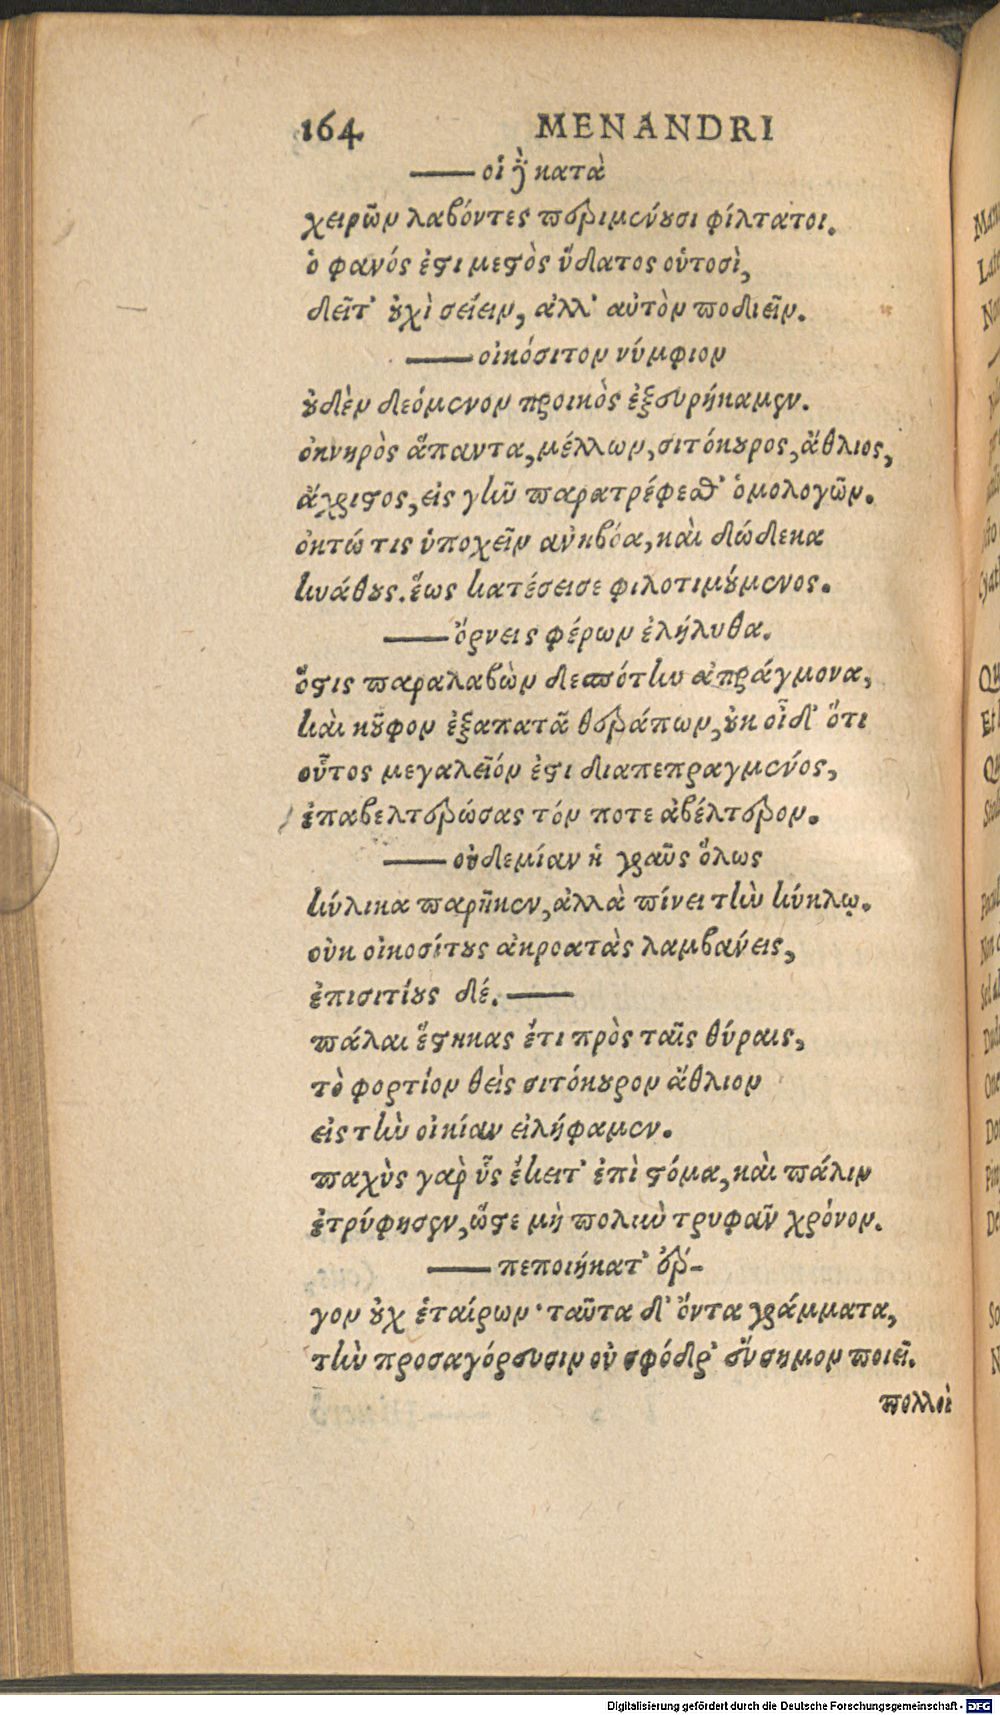 164 MENANDRI
—— οἱ δὲ κατὰ
χειρῶν λαβόντες περιμένουσι φίλτατοι.
ὁ φανός ἐστι μεστὸς ὕδατος οὑτοσὶ,
δεῖτ' οὐχὶ σείειν, ἀλλ' αὐτὸν ποδιεῖν.
—— οἰκόσιτον νύμφιον
οὐδὲν δεόμενον προικὸς ἐξευρήκαμεν.
ὀκνηρὸς ἅπαντα, μέλλων, σιτόκουρος, ἄθλιος,
ἄχρηστος, εἰς γῆν παρατρέφεσθ' ὁμολογῶν.
ὀκτώ τις ὑποχεῖν ἀνεβόα, καὶ δώδεκα
κυάθους. ἕως κατέσεισε φιλοτιμούμενος.
—— ὄρνεις φέρων ἐλήλυθα.
ὅστις παραλαβὼν δεσπότην ἀπράγμονα,
καὶ κοῦφον ἐξαπατᾶ θεράπων, οὐκ οἶδ' ὅτι
οὗτος μεγαλεῖόν ἐστι διαπεπραγμένος,
ἐπαβελτερώσας τόν ποτε ἀβέλτερον.
—— οὐδεμίαν ἡ γραῦς ὅλως
κύλικα παρῆκεν, ἀλλὰ πίνει τὴν κύκλῳ.
οὐκ οἰκοσίτους ἀκροατὰς λαμβάνεις,
ἐπισιτίους δέ. ——
πάλαι ἕστηκας ἔτι πρὸς ταῖς θύραις,
τὸ φορτίον θεὶς σιτόκουρον ἄθλιον
εἰς τὴν οἰκίαν εἰλήφαμεν.
παχὺς γὰρ ὗς ἔκειτ' ἐπὶ στόμα, καὶ πάλιν
ἐτρύφησεν, ὥστε μὴ πολὺν τρυφᾶν χρόνον.
—— πεποιήκατ' ἔρ-
γον οὐχ ἑταίρων· ταῦτα δ' ὄντα γράμματα,
τὴν προσαγόρευσιν οὐ σφόδρ' εὔσημον ποιεῖ.
πολλοὶ
Digitalisierung gefördert durch die Deutsche Forschungsgemeinschaft - DFG